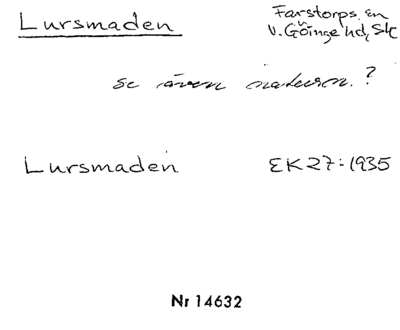 Lursmaden
Farstorps sn
V. Göinge hd, Sk
se även
Lursmaden
EK 27:1935
Nr 14632